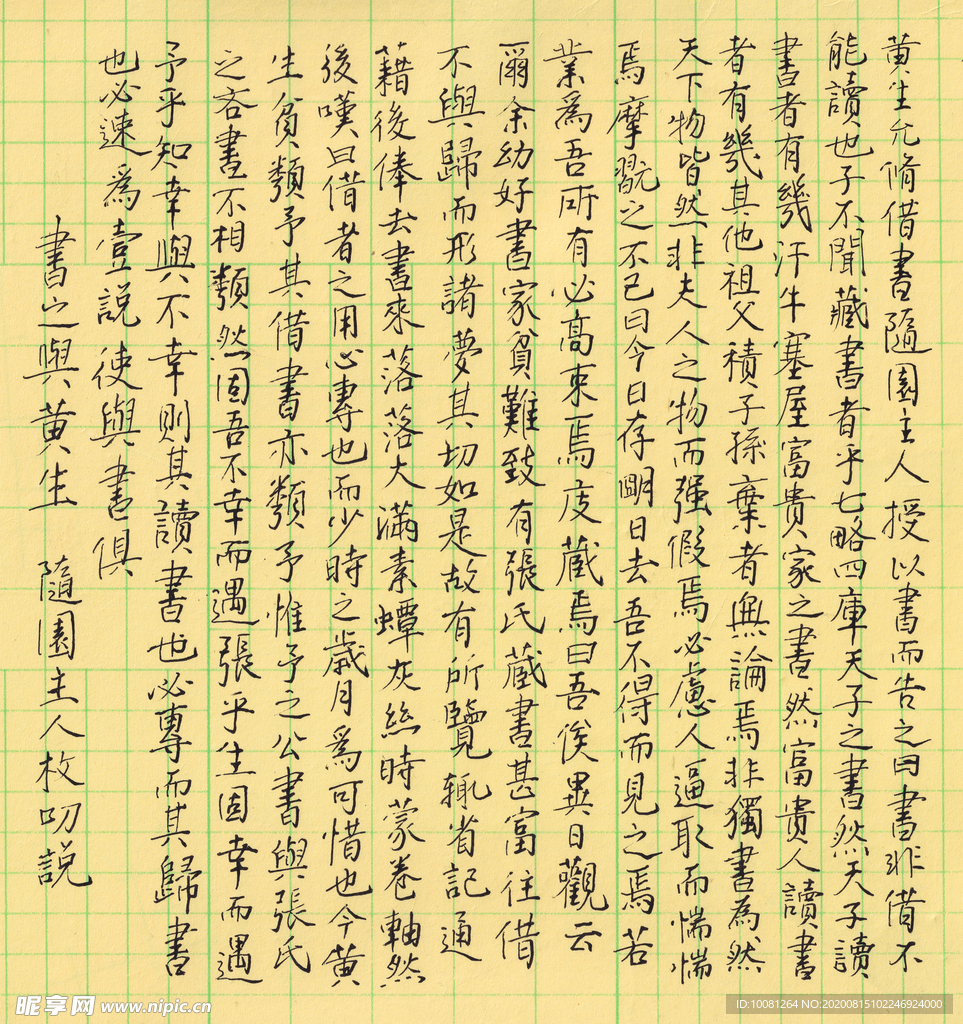 黃生允脩借書隨園主人授以書而告之曰書非借不
能讀也子不聞藏書者乎七略四庫天子之書然天子讀
書者有幾汗牛塞屋富貴家之書然富貴人讀書
者有幾其他祖父積子孫棄者無論焉非獨書為然
天下物皆然非夫人之物而强假焉必慮人逼取而惴惴
焉摩翫之不已曰今日存明日去吾不得而見之焉若
業為吾所有必高束焉庋藏焉曰吾俟異日觀云
爾余幼好書家貧難致有張氏藏書甚富往借
不與歸而形諸夢其切如是故有所覽輒省記通
藉後俸去書來落落大滿素蟫灰絲時蒙卷軸然
後嘆曰借者之用心專也而少時之歲月為可惜也今黃
生貧類予其借書亦類予惟予之公書與張氏
之吝書不相類然固吾不幸而遇張乎生固幸而遇
予乎知幸與不幸則其讀書也必專而其歸書
也必速為壹說使與書俱
書之與黃生 隨園主人枚叨說
昵享网 www.nipic.cn
ID:10081264 NO:20200815102246924000